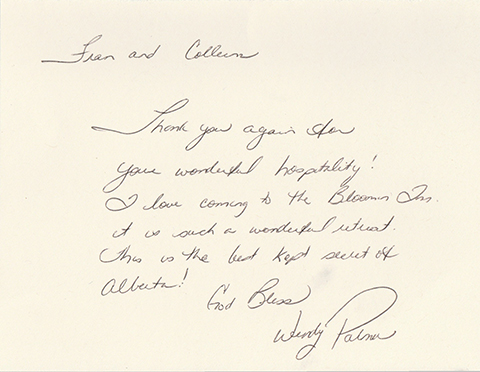 Fran and Colleen
Thank you again for
your wonderful hospitality!
I love coming to the Bloomin Inn.
it is such a wonderful retreat.
this is the best kept secret of
Alberta!
God Bless
Wendy Palmer